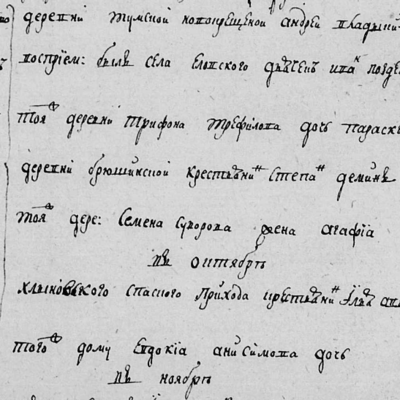 деревни Тумской новокрещеной андреи
восприем: былъ села Еловского дьячекъ ива
тоя деревни трифона трефилова дочь параск
деревни брюшинской крестьянинъ Степанъ деминъ
тоя дере: Семена Суворова жена агафиа
въ октябрѣ
хлыновского спаского прихода крестьянинъ
того дому Евдокиа анисимова дочь
въ ноябрѣ